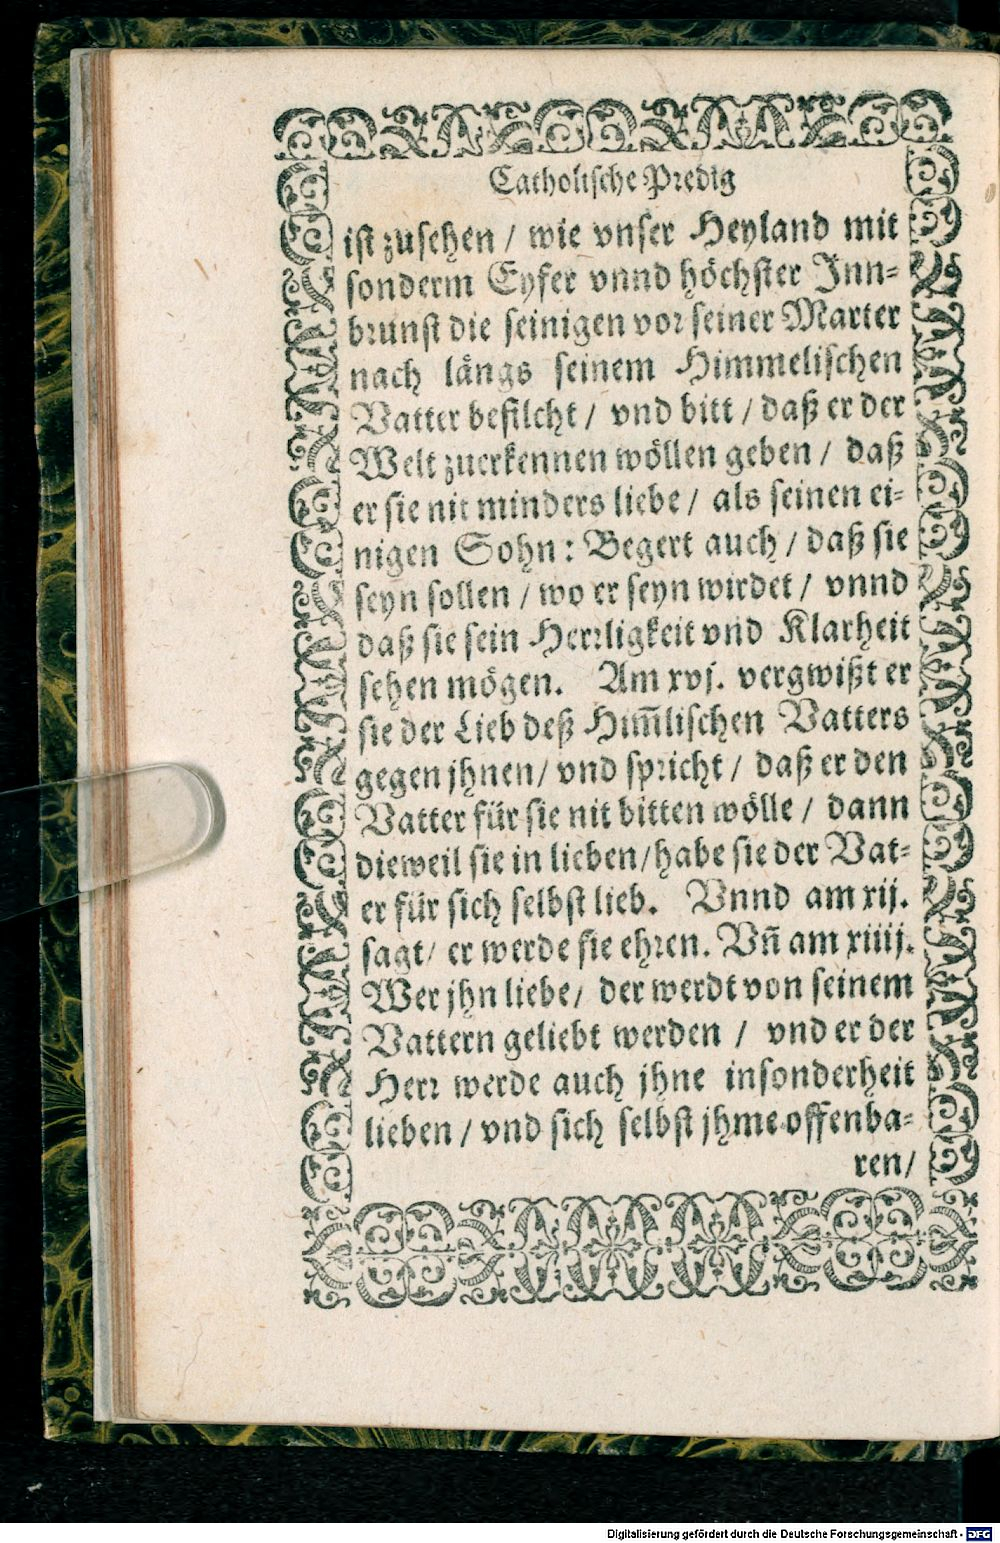 Catholische Predig
ist zusehen / wie vnser Heyland mit
sonderm Eyfer vnnd höchster Inn-
brunst die seinigen vor seiner Marter
nach längs seinem Himmelischen
Vatter befilcht / vnd bitt / daß er der
Welt zuerkennen wöllen geben / daß
er sie nit minders liebe / als seinen ei-
nigen Sohn: Begert auch / daß sie
seyn sollen / wo er seyn wirdet / vnnd
daß sie sein Herrligkeit vnd Klarheit
sehen mögen. Am xvj. vergwißt er
sie der Lieb deß Him̃lischen Vatters
gegen jhnen / vnd spricht / daß er den
Vatter für sie nit bitten wölle / dann
dieweil sie in lieben / habe sie der Vat-
er für sich selbst lieb. Vnnd am xij.
sagt / er werde sie ehren. Vñ am xiiij.
Wer jhn liebe / der werdt von seinem
Vattern geliebt werden / vnd er der
Herr werde auch jhne insonderheit
lieben / vnd sich selbst jhme offenba-
ren /
Digitalisierung gefördert durch die Deutsche Forschungsgemeinschaft - DFG